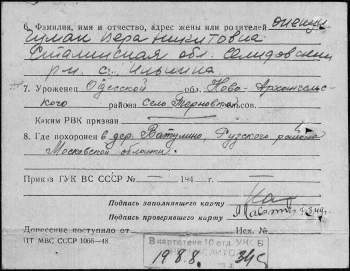 6. Фамилия, имя и отчество, адрес жены или родителей
Вера Никитовна
Сталинская обл. Селидовский
р-н с. Ильинка
7. Уроженец Одесской обл. Ново-Архангельского
района село Терновка
Каким РВК призван
8. Где похоронен в дер. Ватулино, Рузского района
Московской области.
Приказ ГУК ВС СССР № —194
Подпись заполнявшего карту
Подпись проверившего карту
Донесение поступило от Исх. №
ПТ МВС СССР 1066—48
В картотеке 10 отд. УИС Б
198.8. 34с